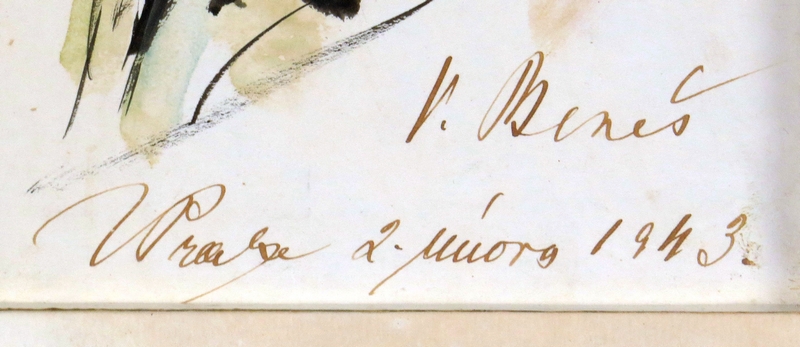 V. Beneš
V Praze 2. února 1943.